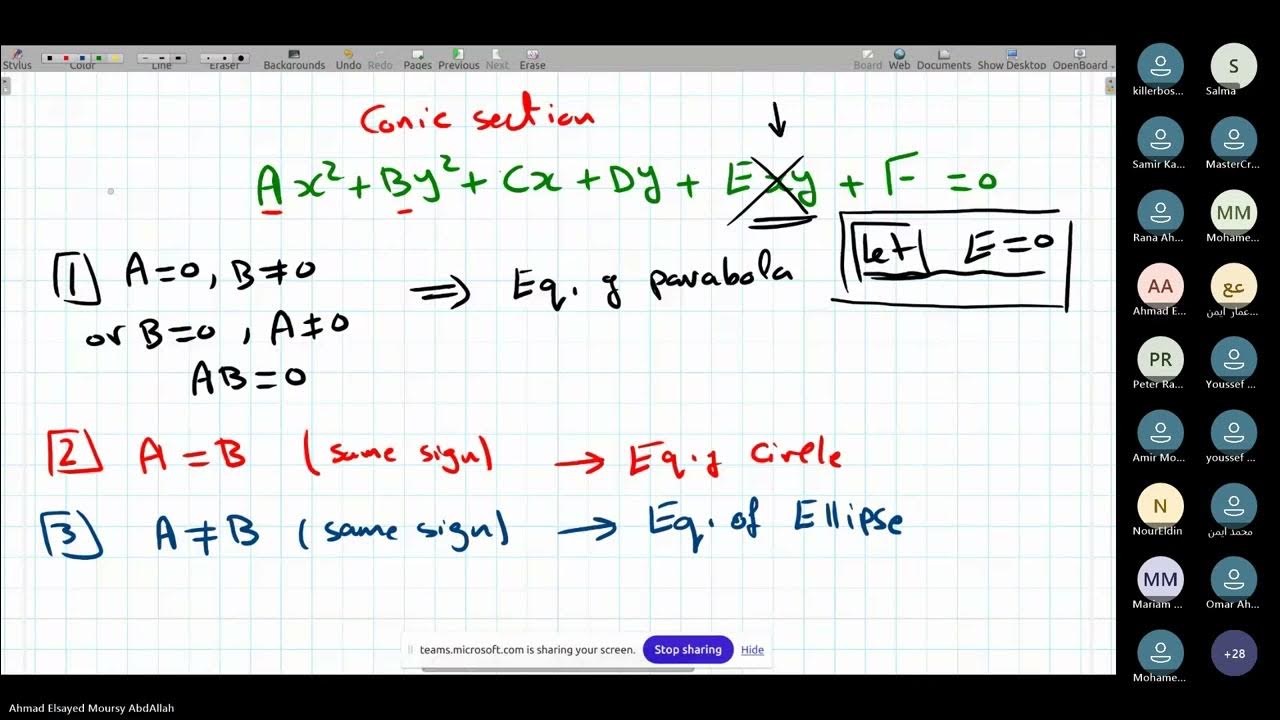 Stylus Color Line Eraser Backgrounds Undo Redo Pages Previous Next Erase Board Web Documents Show Desktop OpenBoard
Conic section
Ax² + By² + Cx + Dy + Exy + F = 0
let E = 0
1 A = 0, B ≠ 0 ⇒ Eq. of parabola
or B = 0, A ≠ 0
AB = 0
2 A = B (same sign) → Eq. of Circle
3 A ≠ B (same sign) → Eq. of Ellipse
teams.microsoft.com is sharing your screen. Stop sharing Hide
Ahmad Elsayed Moursy AbdAllah
S
killerbos... Salma
Samir Ka... MasterCr...
MM
Rana Ah... Mohame...
AA عع
Ahmad E... عمار ايمن...
PR
Peter Ra... Youssef ...
Amir Mo... youssef ...
N
NourEldin محمد ايمن
MM
Mariam ... Omar Ah...
+28
Mohame...